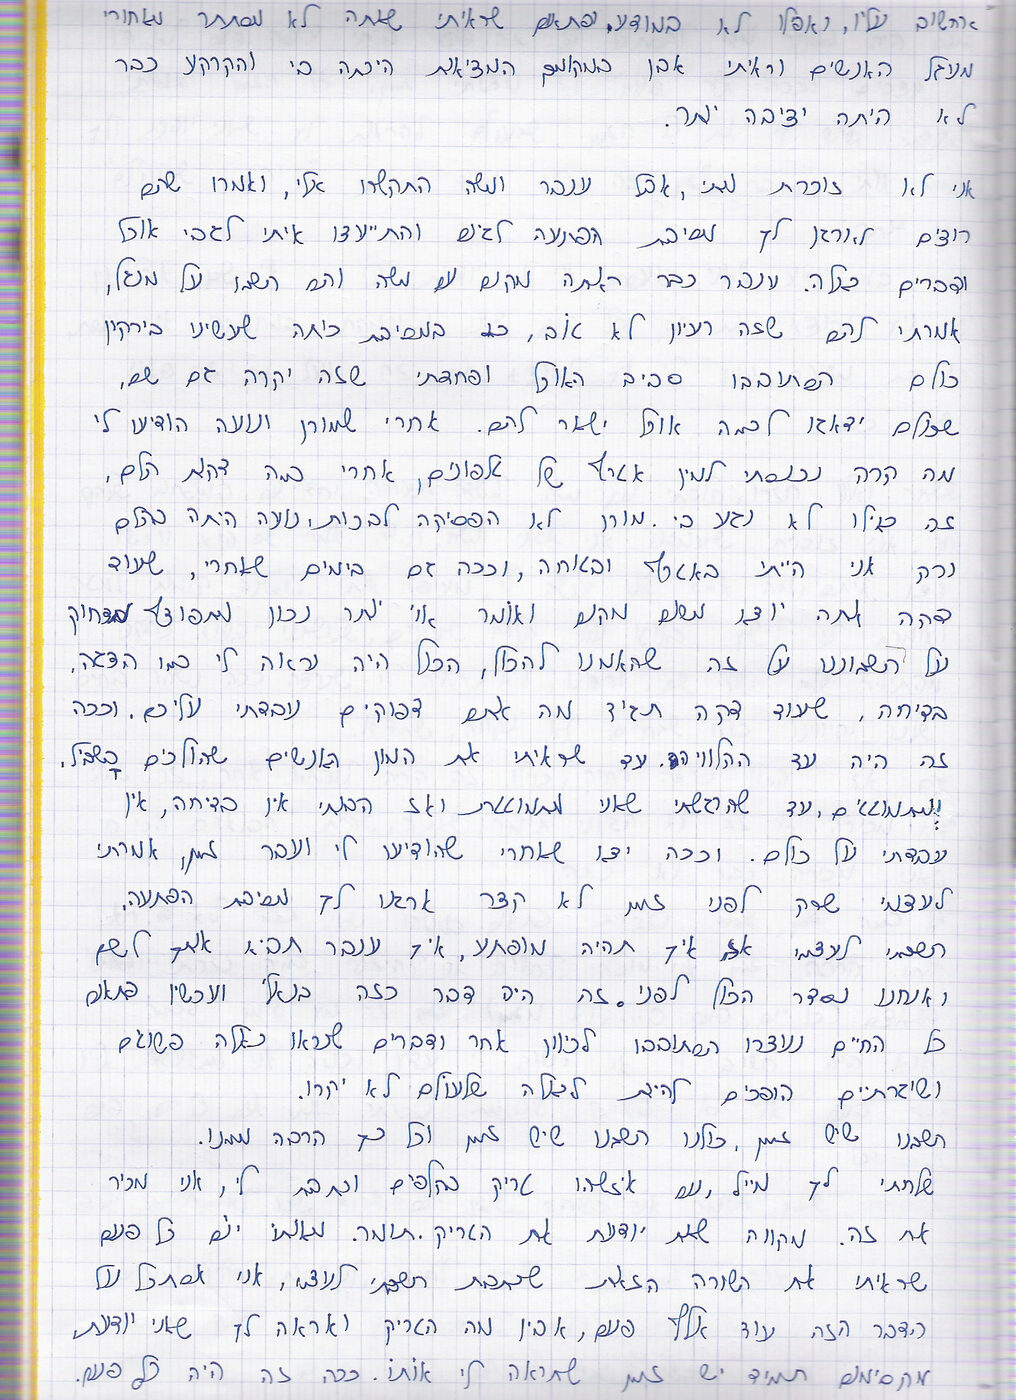 אחשוב עליו, ואפילו לא במודע. ופתאום שראיתי שאתה לא מסתתר מאחורי
מעגל האנשים וראיתי אבן במקומם המציאות היכתה בי והקרקע כבר
לא היתה יציבה יותר.
אני לא זוכרת מתי, אבל ענבר ומשה התקשרו אלי, ואמרו שהם
רוצים לארגן לך מסיבת הפתעה לגיוס והתייעצו איתי לגבי אוכל
ודברים כאלה. ענבר כבר ראתה מקום עם משה והם חשבו על מנגל,
אמרתי להם שזה רעיון לא טוב, כי במסיבת כיתה שעשינו בירקון
כולם הסתובבו סביב האוכל ופחדתי שזה יקרה גם שם,
שכולם ידאגו לכמה אוכל ישאר להם. אחרי שמורן ונועה הודיעו לי
מה קרה נכנסתי למין אטרף של טלפונים, אחרי כמה דקות הלם,
זה כאילו לא נגע בי. מורן לא הפסיקה לבכות, נועה היתה בהלם
ורק אני הייתי באטרף ובאותה, וככה גם בימים שאחרי, שעוד
דקה אתה יוצא משום מקום ואומר אוי יותר נכון מתפוצץ מצחוק
על חשבוננו על זה שהאמנו להכל, הכל היה נראה לי כמו הצגה,
בדיחה, שעוד דקה תגיד מה אתם דפוקים עבדתי עליכם. וככה
זה היה עד ההלוויה. עד שראיתי את המון האנשים שהולכים בשביל,
ומתמוטטים, עד שהרגשתי שאני מתמוטטת ואז הבנתי אין בדיחה, אין
עבדתי על כולם. וככה יצא שאחרי שהודיעו לי ועבר זמן, אמרתי
לעצמי שרק לפני זמן לא קצר ארגנו לך מסיבת הפתעה,
חשבתי לעצמי אז איך תהיה מופתע, איך ענבר תביא אותך לשם
ואנחנו נסדר הכל לפני. זה היה דבר כזה בנאלי ועכשיו פתאום
כל החיים נעצרו הסתובבו לכיוון אחר ודברים שנראו כאלה פשוטים
ושיגרתיים הופכים להיות לכאלה שלעולם לא יקרו.
חשבנו שיש זמן, כולנו חשבנו שיש זמן וכל כך הרבה ממנו.
שלחתי לך מייל, עם איזשהו טריק בקלפים וכתבת לי, אני מכיר
את זה. מקווה שאת יודעת את הטריק. תומר. מאותו יום כל פעם
שראיתי את השורה הזאת שכתבת חשבתי לעצמי, אני אסתכל על
הדבר הזה עוד אלף פעם, אבין מה הטריק ואראה לך שאני יודעת,
מקסימום תמיד יש זמן שתראה לי אותו. ככה זה היה כל פעם.